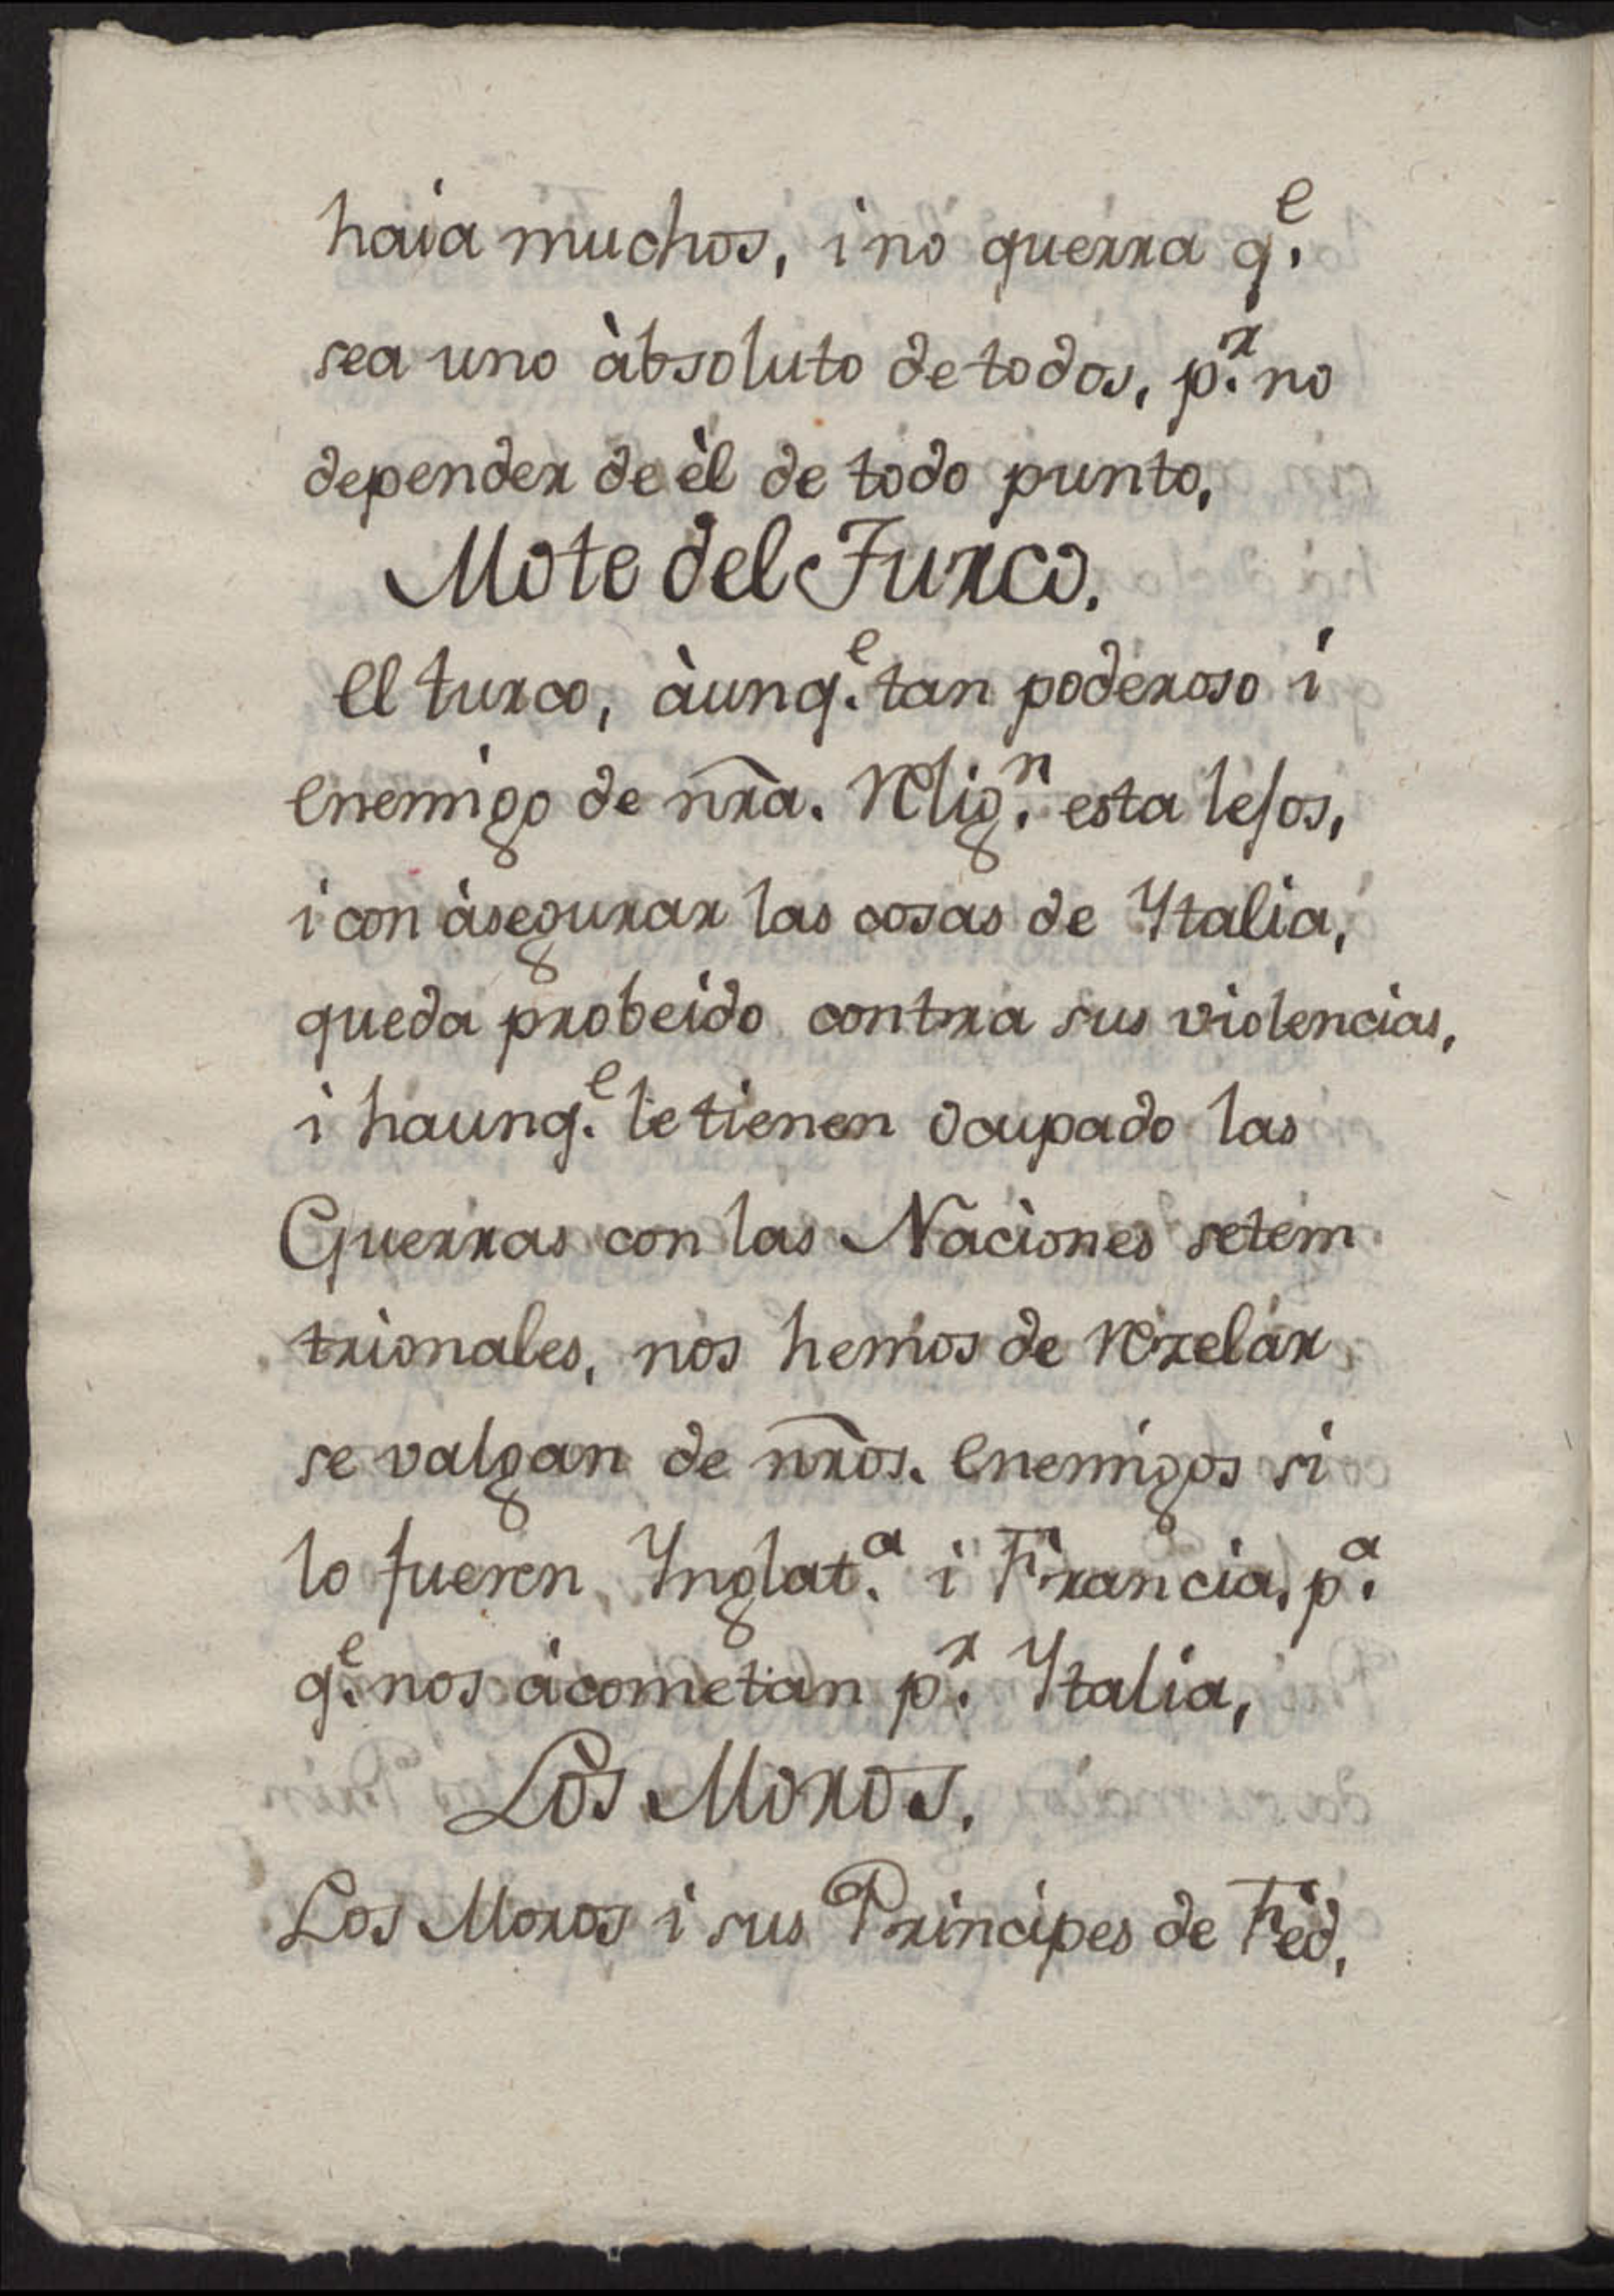 haia muchos, i no querra q.e
sea uno àbsoluto de todos, p.r no
depender de èl de todo punto,
Mote del Turco.
El turco, àunq.e tan poderoso i
enemigo de nr̃a. Relig.n esta lejos,
i con àsegurar las cosas de Ytalia,
queda probeido contra sus violencias,
i haunq.e le tienen ocupado las
Guerras con las Naciones setem
trionales, nos hemos de rezelár
se valgan de nr̃os. enemigos si
lo fueren Ynglat.a i Francia, p.a
q.e nos àcometan p.r Ytalia,
Los Moros.
Los Moros i sus Principes de Fèd,